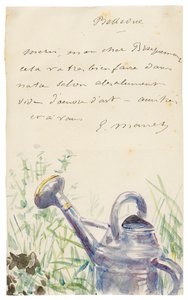 Bellevue
merci, mon cher
cela va très bien faire dans
notre salon absolument
vide d'œuvre d'art –
et à vous
E. Manet